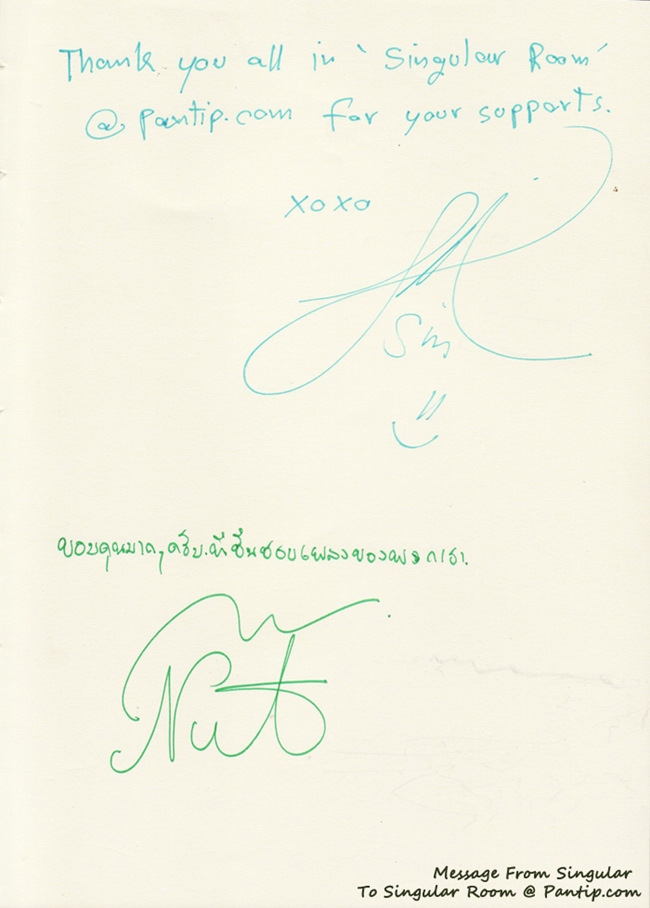 Thank you all in 'Singular Room'
@ Pantip.com for your supports.
xoxo
Sin
ขอบคุณมากๆครับ.ที่ชื่นชอบเพลงของพวกเรา.
Nut
Message From Singular
To Singular Room @ Pantip.com